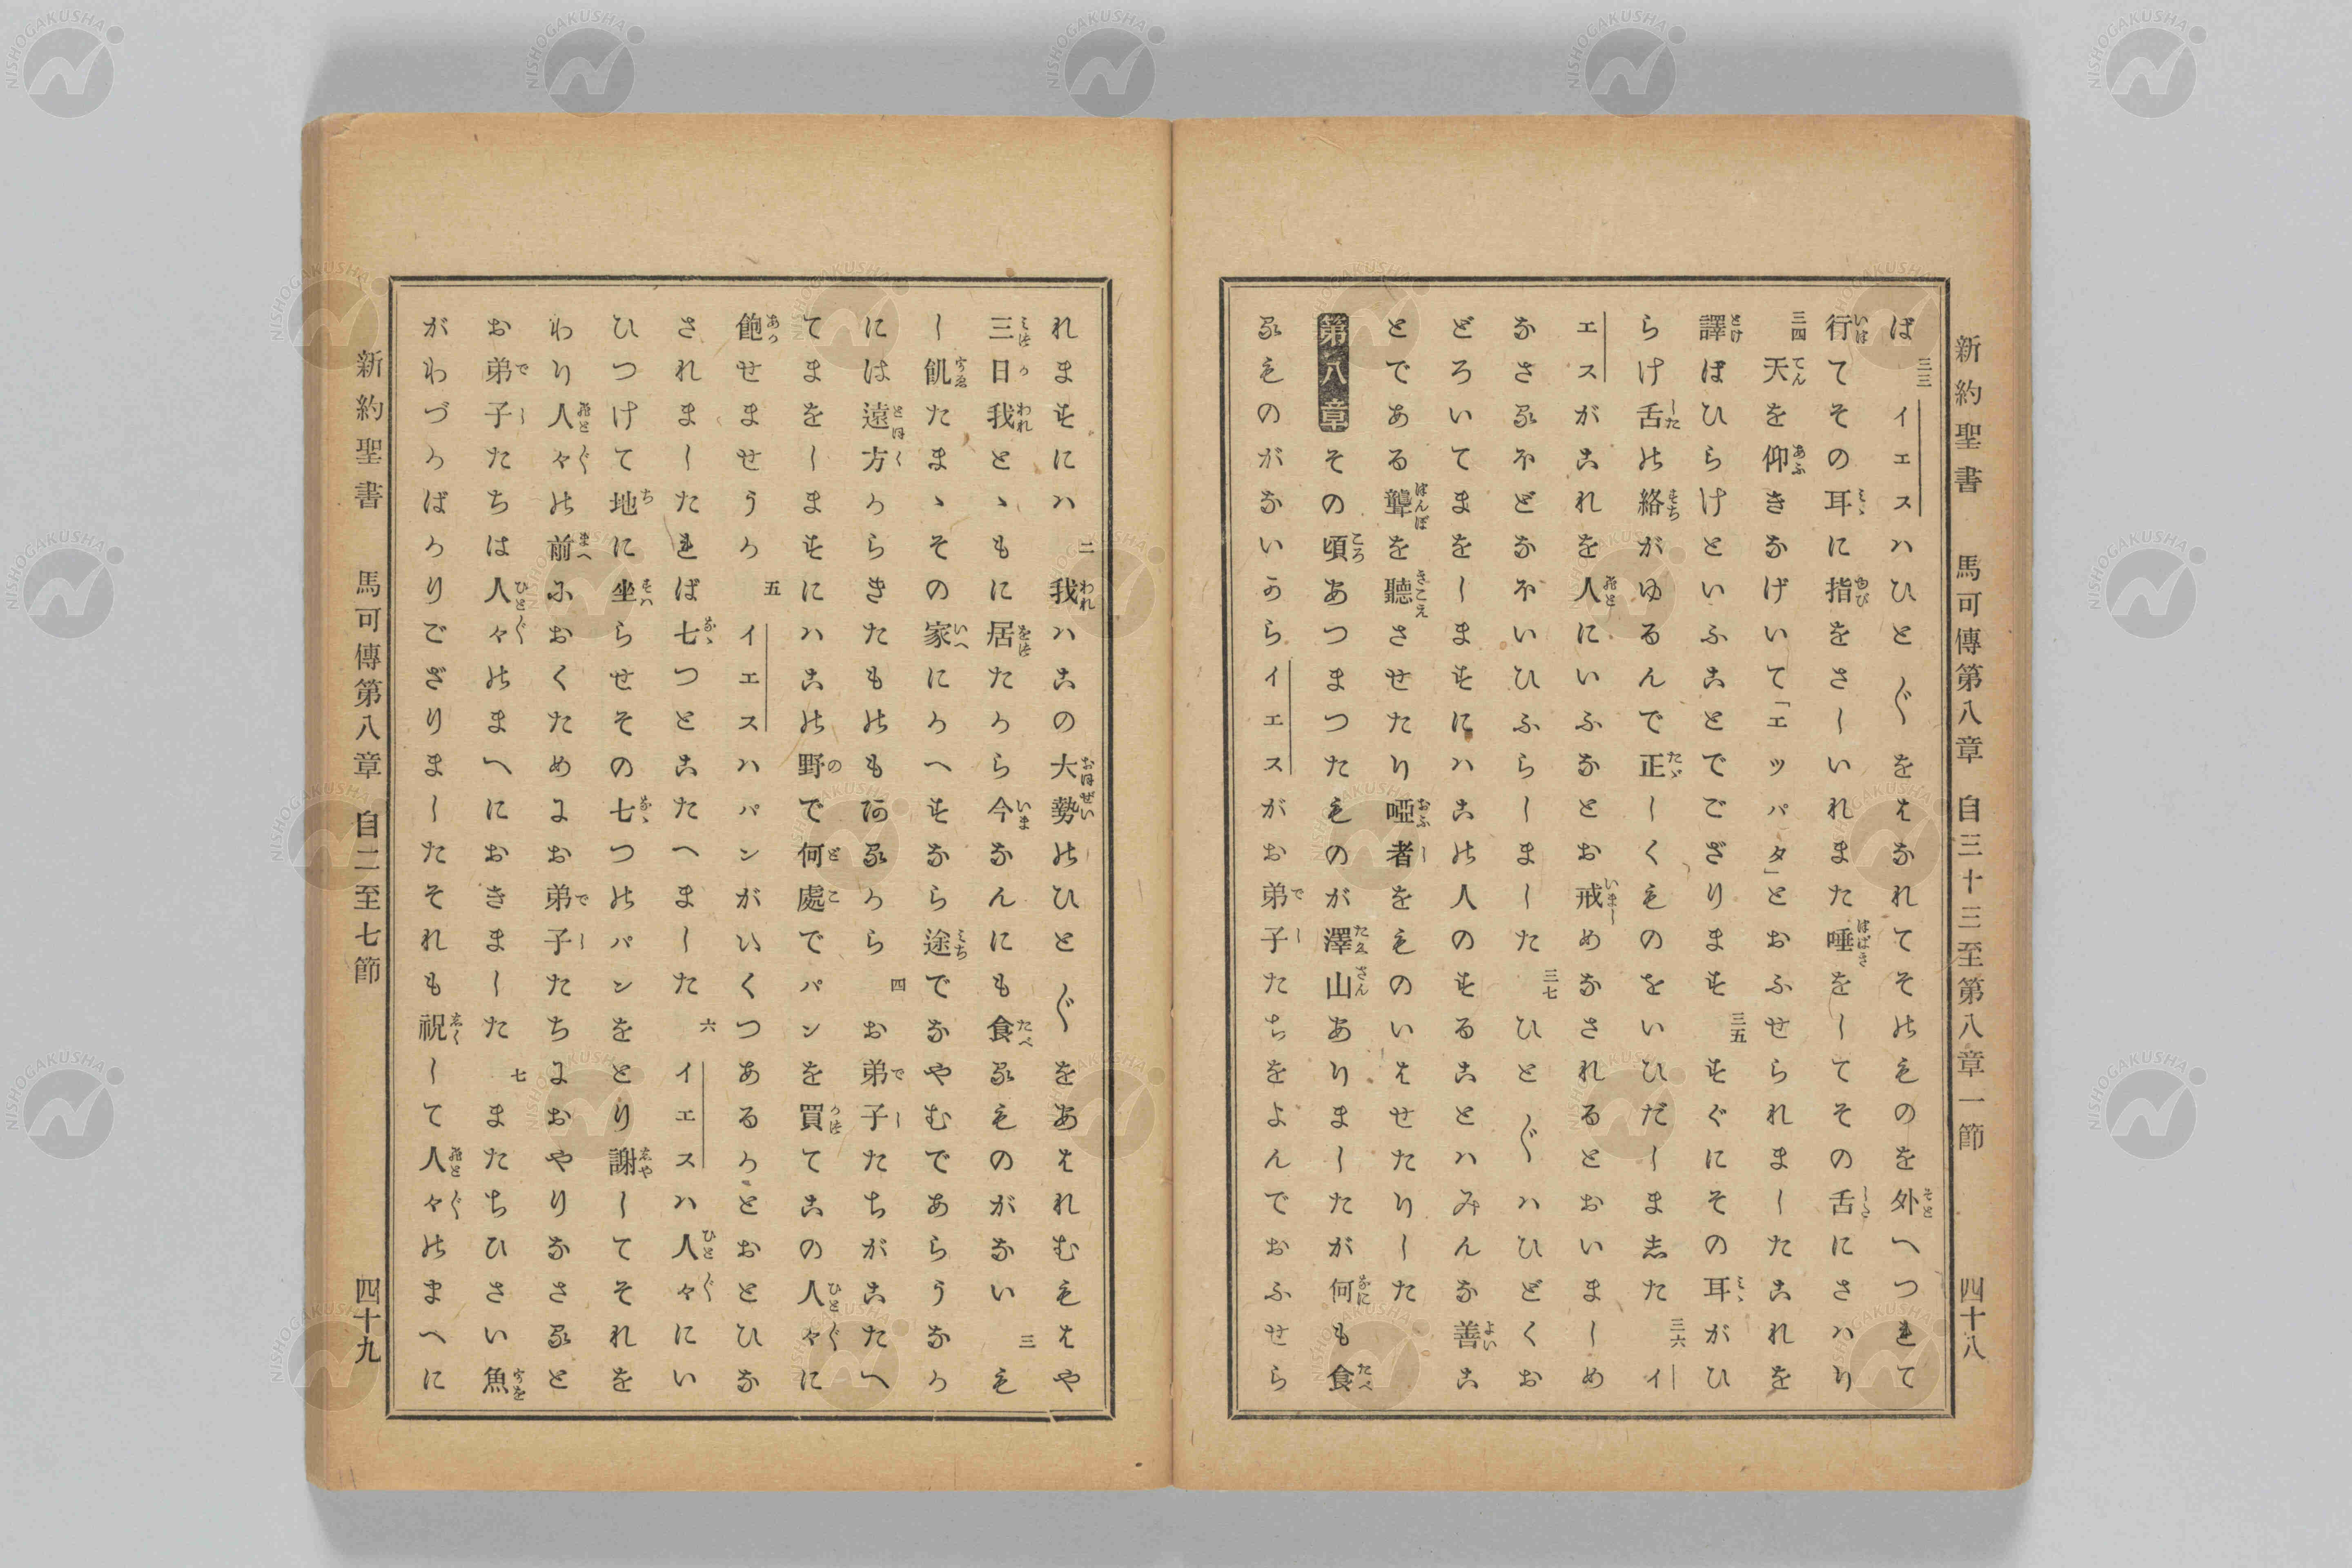 新約聖書 馬可傳第八章 自三十三至第八章一節 四十八
ば 三三 イエスハひと〴〵をはなれてそのものを外へつれて
行てその耳に指をさしいれまた唾をしてその舌にさハり
三四 天を仰きなげいて「エッパタ」とおふせられましたこれを
譯ばひらけといふことでござります 三五 すぐにその耳がひ
らけ舌の絡がゆるんで正しくものをいひだしました 三六 イ
エスがこれを人にいふなとお戒めなされるとおいましめ
なさるほどなほいひふらしました 三七 ひと〴〵ハひどくお
どろいてまをしますにハこの人のすることハみんな善こ
とである聾を聽させたり啞者をものいはせたりした
第八章 その頃あつまつたものが澤山ありましたが何も食
るものがないからイエスがお弟子たちをよんでおふせら
れますにハ 二 我ハこの大勢のひと〴〵をあはれむもはや
三日我とゝもに居たから今なんにも食るものがない 三 も
し飢たまゝその家にかへすなら途でなやむであらうなか
には遠方からきたものもあるから 四 お弟子たちがこたへ
てまをしますにハこの野で何處でパンを買てこの人々に
飽せませうか 五 イエスハパンがいくつあるかとおとひな
されましたれば七つとこたへました 六 イエスハ人々にい
ひつけて地に坐らせその七つのパンをとり謝してそれを
わり人々の前におくためにお弟子たちにおやりなさると
お弟子たちは人々のまへにおきました 七 またちひさい魚
がわづかばかりござりましたそれも祝して人々のまへに
新約聖書 馬可傳第八章 自二至七節 四十九
NISHOGAKUSHA